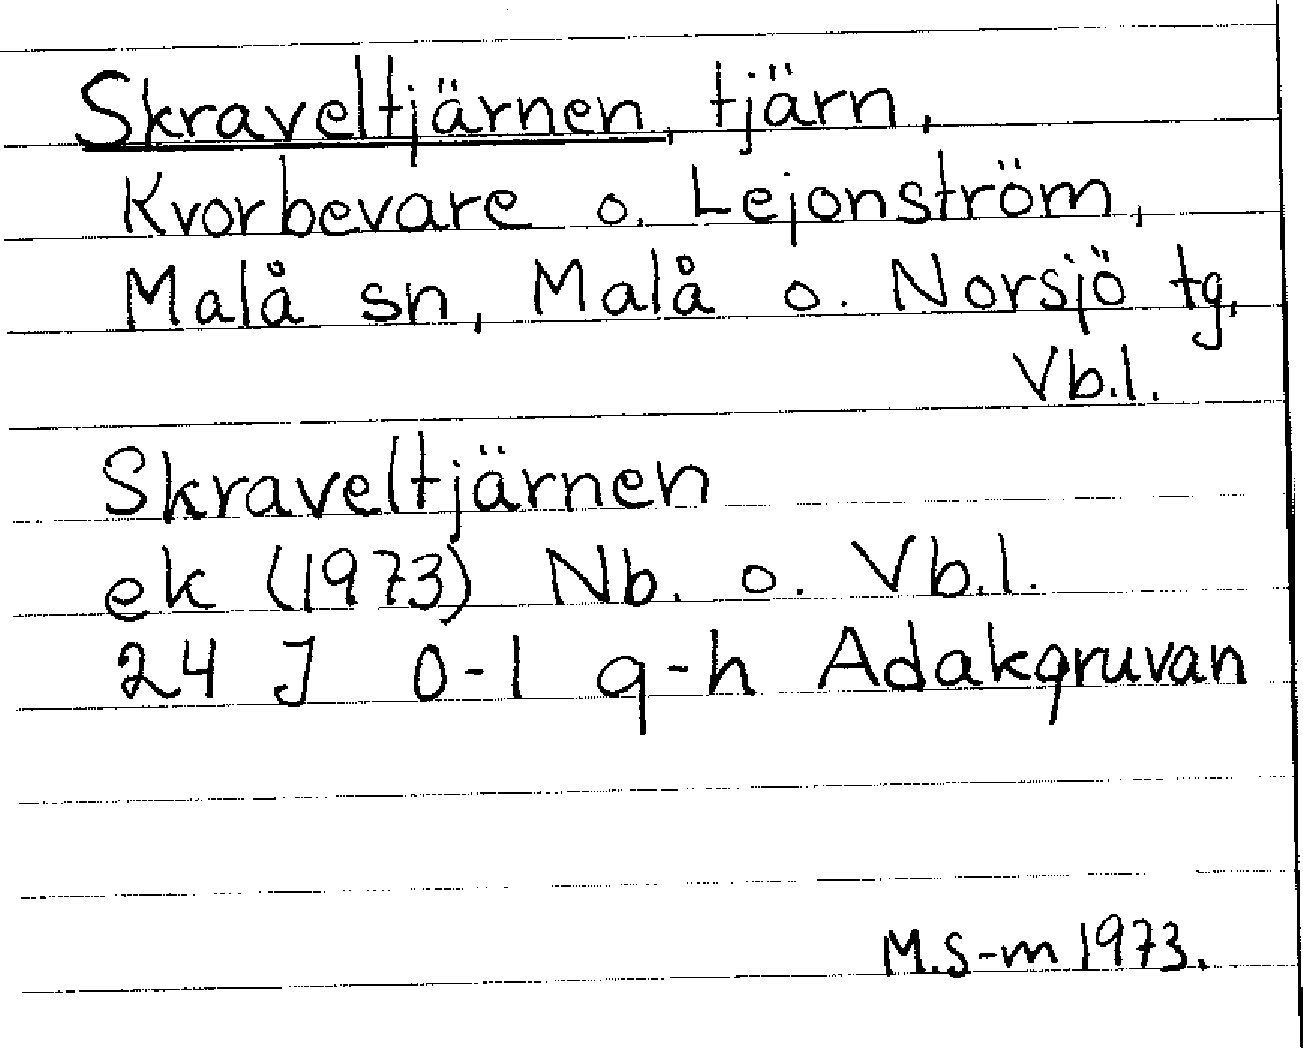 Skraveltjärnen, tjärn,
Kvorbevare o. Lejonström,
Malå sn, Malå o. Norsjö tg,
Vb.l.
Skraveltjärnen
ek (1973) Nb. o. Vb.l.
24 J 0-1 g-h Adakgruvan
M.S-m 1973.